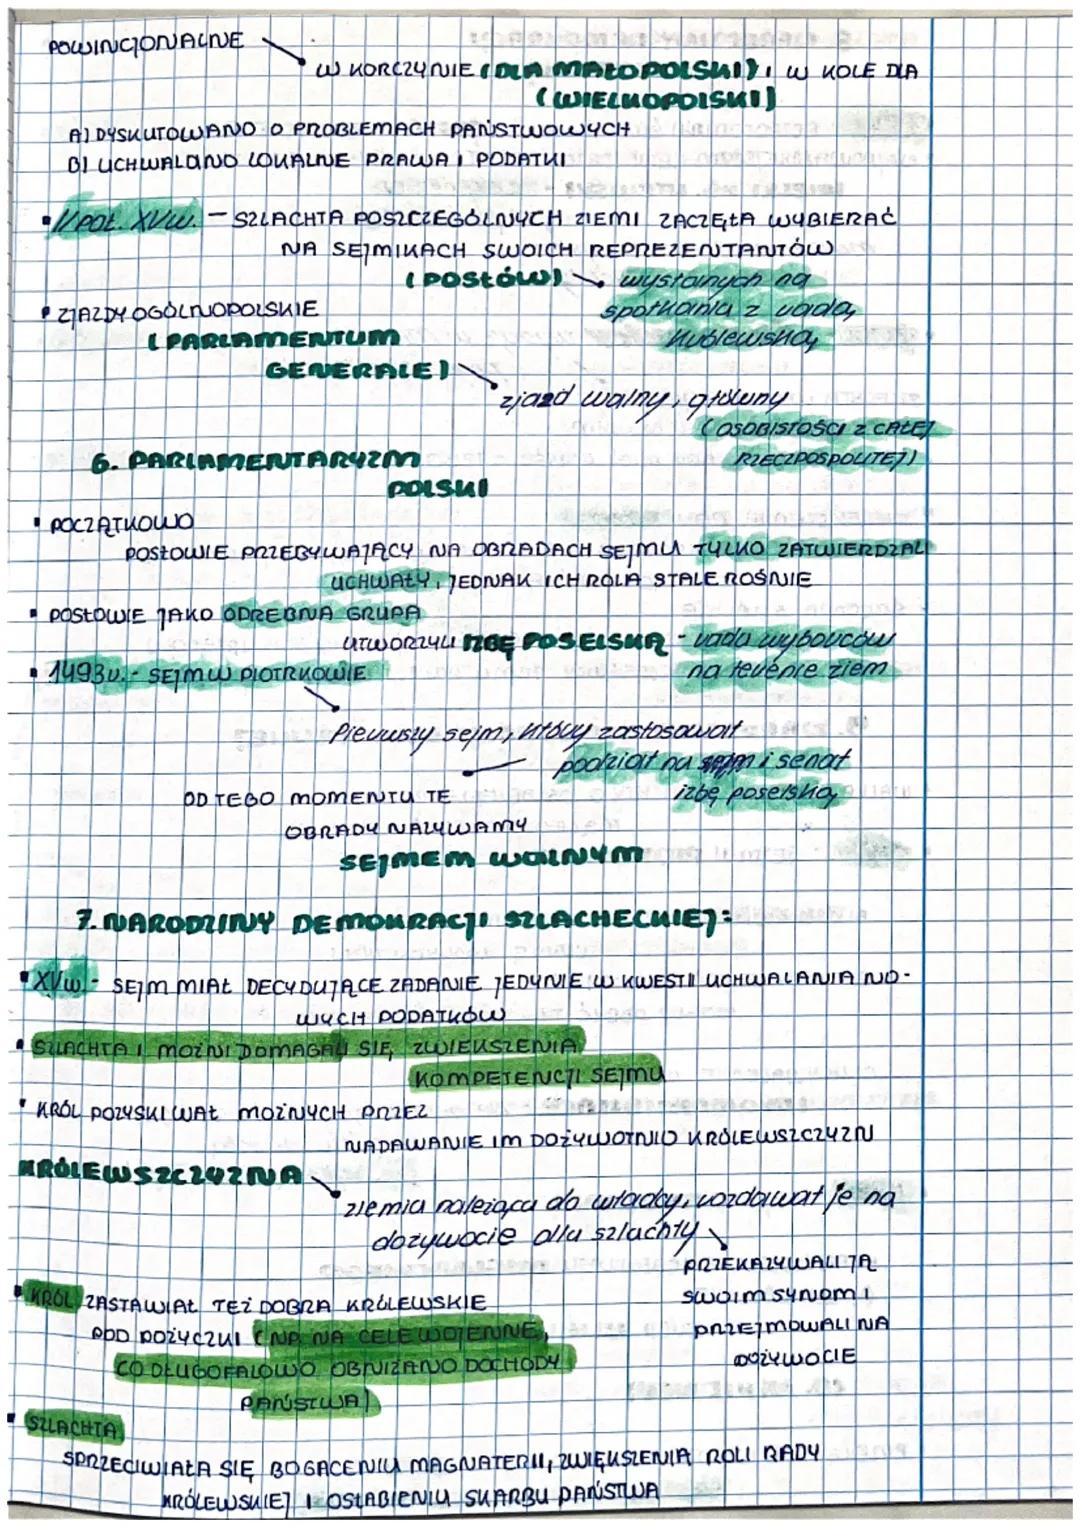 POWINCJONALNE
W KORCZYNIE (DLA MAŁOPOLSKI) I W KOLE DLA
(WIELKOPOLSKI)
A) DYSKUTOWANO O PROBLEMACH PAŃSTWOWYCH
B) UCHWALANO LOKALNE PRAWA I PODATKI
• II POŁ. XVW. — SZLACHTA POSZCZEGÓLNYCH ZIEMI ZACZĘŁA WYBIERAĆ
NA SEJMIKACH SWOICH REPREZENTANTÓW
(POSŁÓW)
wysłanych na
spotkania z radą
królewską
• ZJAZDY OGÓLNOPOLSKIE
(PARLAMENTUM
GENERALE)
zjazd walny, główny
(OSOBISTOŚCI Z CAŁEJ
RZECZPOSPOLITEJ)
6. PARLAMENTARYZM
POLSKI
• POCZĄTKOWO
POSŁOWIE PRZEBYWAJĄCY NA OBRADACH SEJMU TYLKO ZATWIERDZALI
UCHWAŁY, JEDNAK ICH ROLA STALE ROŚNIE
• POSŁOWIE JAKO ODRĘBNA GRUPA
UTWORZYLI IZBĘ POSELSKĄ - rada wyborców
na terenie ziem
• 1493r. - SEJM W PIOTRKOWIE
Pierwszy sejm, który zastosował
podział na sejm i senat
izbę poselską
OD TEGO MOMENTU TE
OBRADY NAZYWAMY
SEJMEM WALNYM
7. NARODZINY DEMOKRACJI SZLACHECKIEJ:
• XVw. - SEJM MIAŁ DECYDUJĄCE ZADANIE JEDYNIE W KWESTII UCHWALANIA NO-
WYCH PODATKÓW
• SZLACHTA I MOŻNI DOMAGALI SIĘ ZWIĘKSZENIA
KOMPETENCJI SEJMU
• KRÓL POZYSKIWAŁ MOŻNYCH PRZEZ
NADAWANIE IM DOŻYWOTNIO KRÓLEWSZCZYZN
KRÓLEWSZCZYZNA
ziemia należąca do władcy, rozdawał je na
dożywocie dla szlachty
PRZEKAZYWALI JĄ
SWOIM SYNOM I
PRZEJMOWALI NA
DOŻYWOCIE
• KRÓL ZASTAWIAŁ TEŻ DOBRA KRÓLEWSKIE
POD POŻYCZKI (NP. NA CELE WOJENNE,
CO DŁUGOFALOWO OBNIŻANO DOCHODY
PAŃSTWA)
• SZLACHTA
SPRZECIWIAŁA SIĘ BOGACENIU MAGNATERII, ZWIĘKSZENIA ROLI RADY
KRÓLEWSKIEJ I OSŁABIENIU SKARBU PAŃSTWA